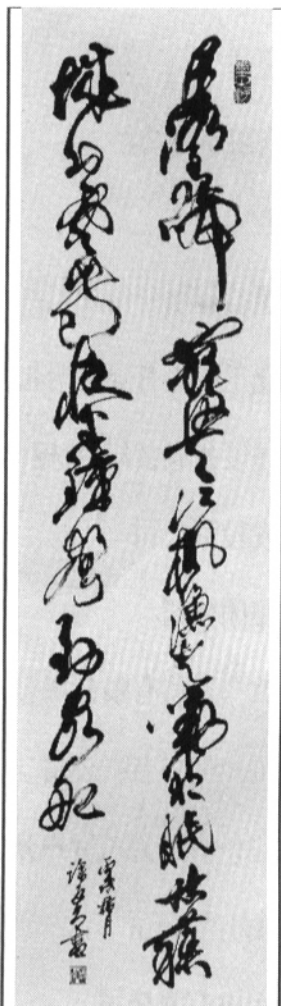 月落烏啼霜滿天江楓漁火對愁眠姑蘇
城外寒山寺夜半鐘聲到客船